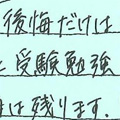 後悔だけは
と受験勉強
は残ります.